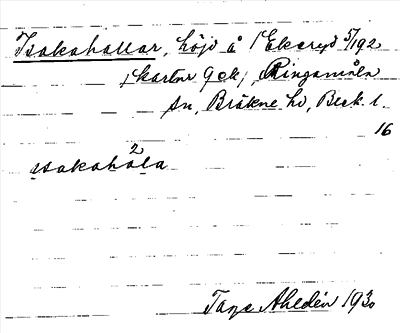 Isakahallar, höjd å 1 Ekeryd 5/192
(kartor Gek) Ringamåla
sn, Bräkne hd, Blek. l.
16
ɪsakaha²la
Tage Ahldén 1930